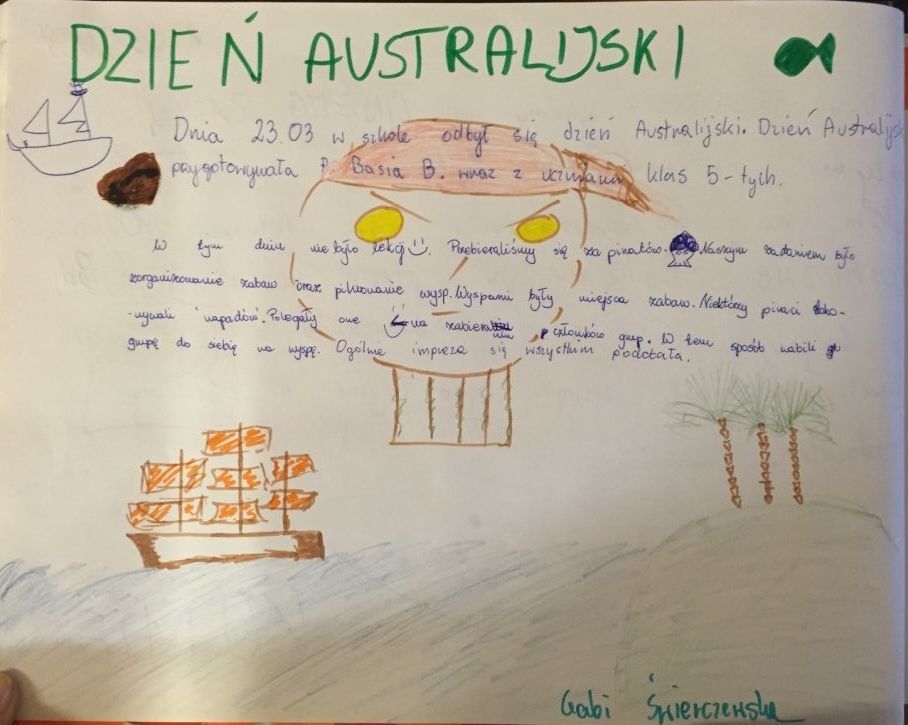 DZIEŃ AUSTRALIJSKI
Dnia 23.03 w szkole odbył się dzień Australijski. Dzień Australijsk
przygotowywała P. Basia B. wraz z uczniami klas 5-tych.
W tym dniu nie było lekcji. Przebieraliśmy się za piratów. Naszym zadaniem było
zorganizowanie zabaw oraz pilnowanie wysp. Wyspami były miejsca zabaw. Niektórzy piraci doko-
-nywali napadów. Polegały one na zabieraniu członków grup. W ten sposób wabili
grupę do siebię na wyspę. Ogólnie impreza się wszystkim podobała.
Gabi Świerczewska